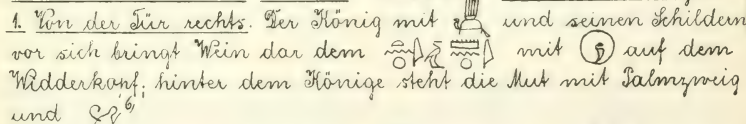 1. Von der Tür rechts. Der König mit und seinen Schildern
vor sich bringt Wein dar dem mit auf dem
Widderkopf; hinter dem Könige steht die Mut mit Palmzweig
und 6)